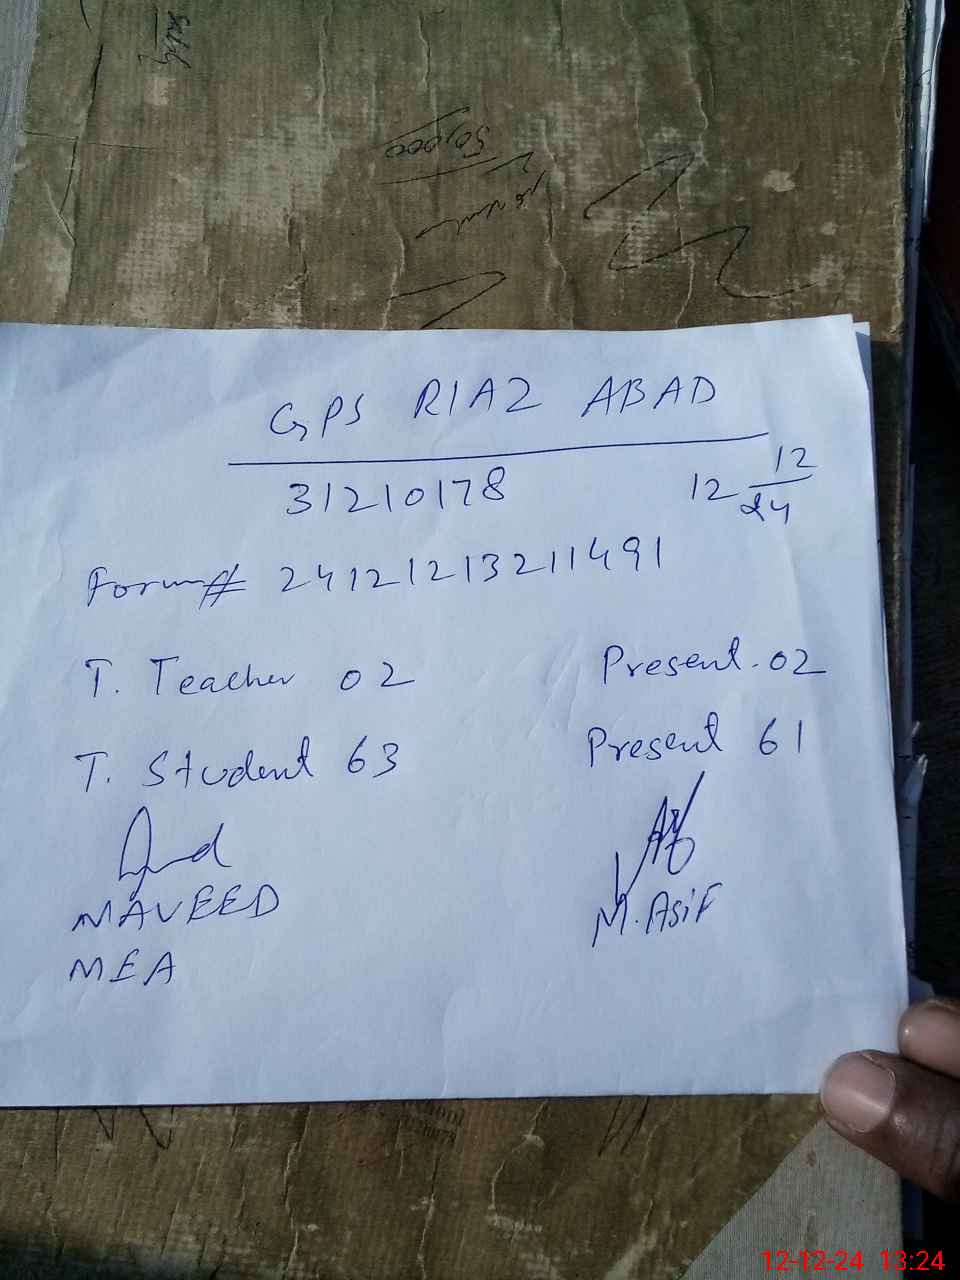 50,000
GPS RIAZ ABAD
31210178
12 12/24
Form# 24121213211491
T. Teacher 02
Present. 02
T. Student 63
Present 61
NAVEED
M. Asif
MEA
12-12-24 13:24